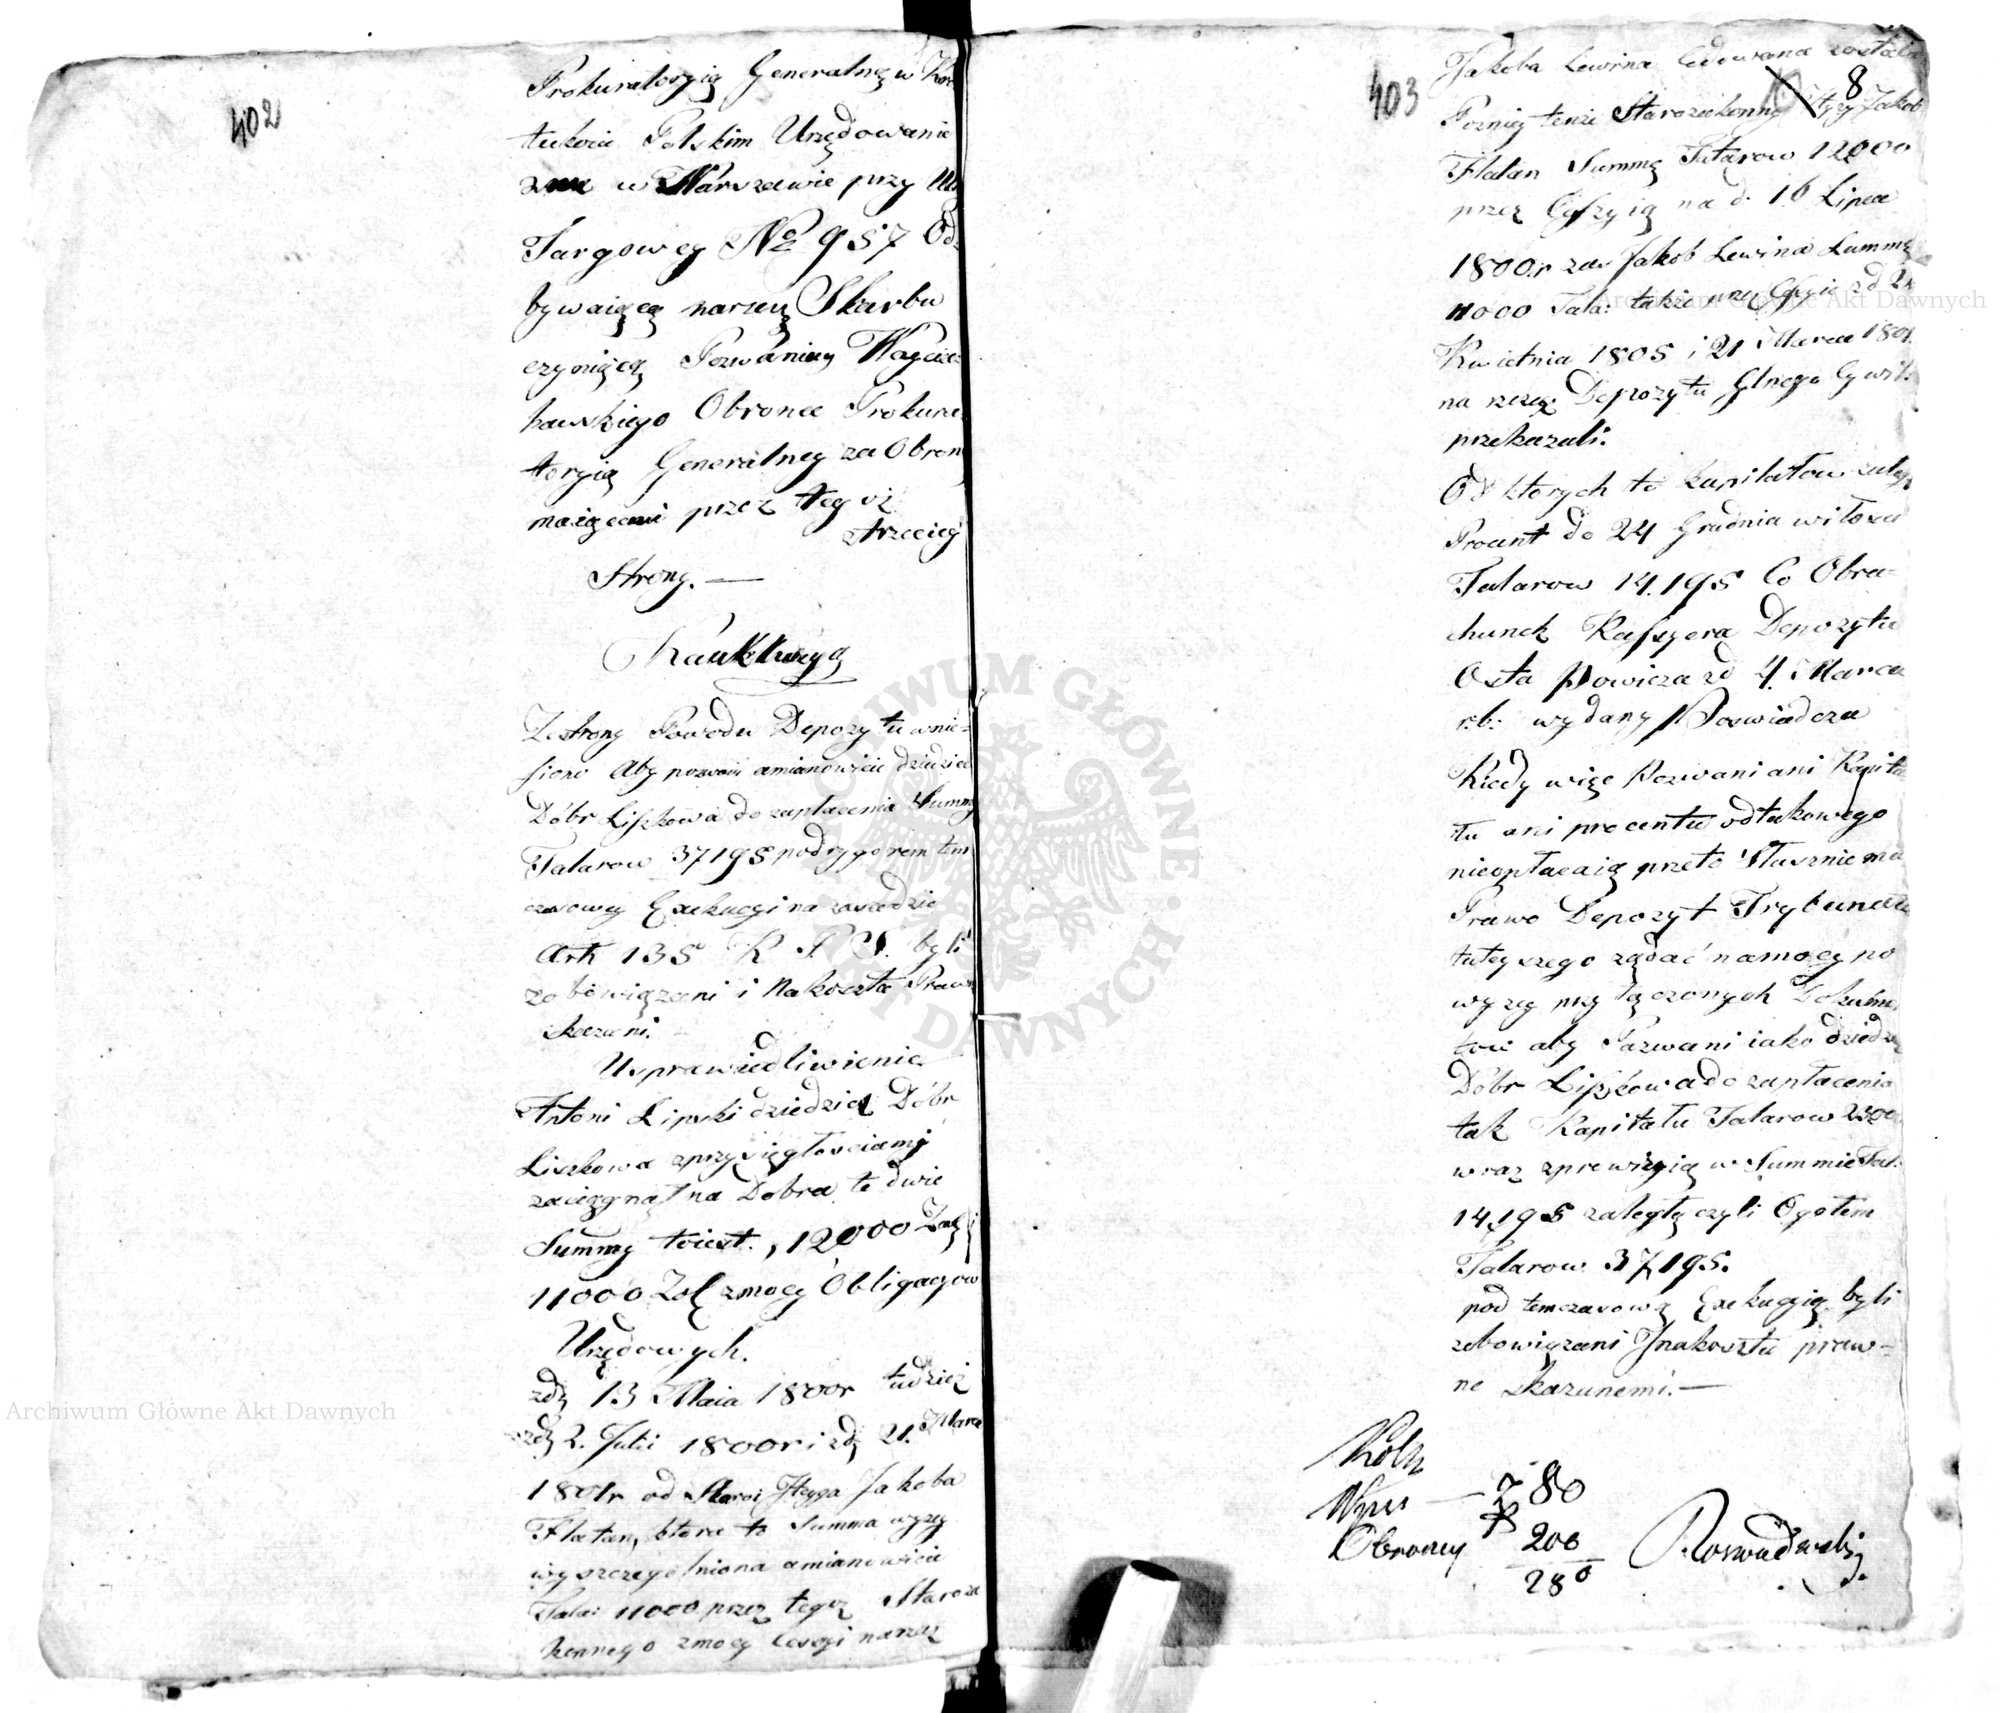 402
Prokuratoryią Generalną w Kró
lestwie Polskim Urzędowanie
swe w Warszawie przy Ul:
Targowey No 957 Od:
bywaiącą narzecz Skarbu
czyniącą Pozwaniem Woycie
howskiego Obronce Prokura
toryią Generalney za Obron
maiącemi przez tegoż
trzeciey
Strony. —
Konkluzya
Ze strony Powoda Depozytu wnie:
siono Aby pozwani amianowicie dziedzic
Dóbr Liszkowa do zapłacenia Summy
Talarow 37195 pod rygorem tem
czasowey Exekucyi na zasadzie
Art 135 K. P. S. byli
zobowiązani i Na koszta Prawn
skazani.
Usprawiedliwienie
Antoni Lipski dziedzic Dóbr
Liszkowa zprzyległosciami
zaciągnął na Dobra te dwie
Summy toiest. 12000 Tal i
11000 Tal zmocy Obligacyow
Urzędowych.
zdą 13 Maia 1800r tudzież
zdą 2. Julii 1800r i zdą 21. Marca
1801r od Staroz Hyrza Jakoba
Flatau, ktora to Summa wyzey
wyszczegolniona amianowicie
Tala: 11000 przez tegoz Staroza
konnego zmocy Cessyi narzecz
403
8
Jakoba Lewina Cedowana została
Pozniey tenże Starozakonny Hyrz Jakob
Flatau Summę Talarow 12000
przez Cessyią na d. 16 Lipca
1800.r zaś Jakob Lewina Summę
11000 Tala: także przez Cessyie zd 24
Kwietnia 1805 i 21 Marca 1801.
na rzecz Depozytu Glnego Cywil.
przekazali.
Od ktorych to kapitałow zaleg
Procent do 24 Grudnia wilosci
Talarow 14.195 Co Obra-
chunek Kassyera Depozytu
Osta powicza zd 4. Marca
r.b: wydany Poswiadcza
Kiedy więc Pozwani ani Kapita
łu ani procentu odtakowego
nieopłacaią przeto Słusznie ma
Prawo Depozyt Trybunału
tuteyszego żądać namocy po
wyzey przyłączonych Dokumen
tow aby Pozwani iako dziedzic
Dóbr Liszkowa do zapłacenia
tak Kapitału Talarow 23000
wraz zprowizyią w Summie Tal:
14,195 zaległą czyli Ogołem
Talarow 37,195.
pod temczasową Exekucyią byli
zobowiązani Inakoszta praw-
ne Skazanemi. —
Wpis — 80
Obroncy 200
280
Rozwadowski